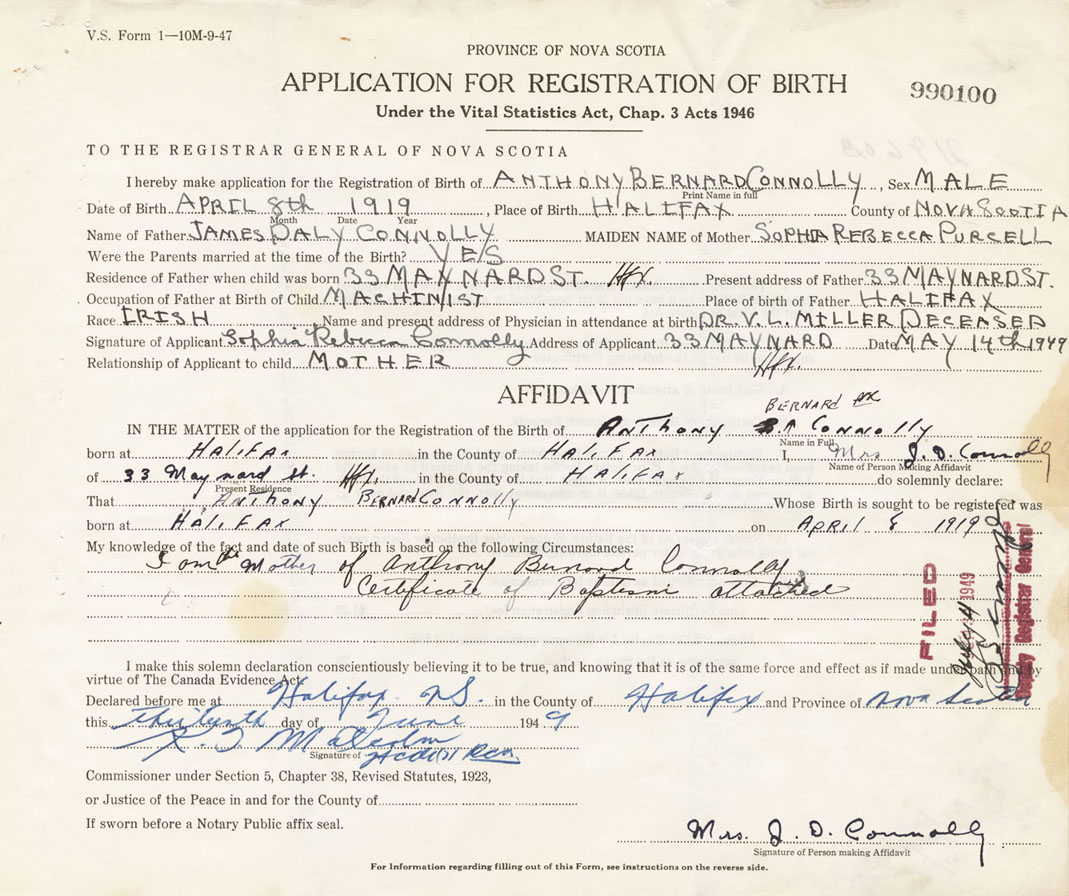 V.S. Form 1—10M-9-47
PROVINCE OF NOVA SCOTIA
APPLICATION FOR REGISTRATION OF BIRTH
990100
Under the Vital Statistics Act, Chap. 3 Acts 1946
TO THE REGISTRAR GENERAL OF NOVA SCOTIA
I hereby make application for the Registration of Birth of ANTHONY BERNARD CONNOLLY, Sex MALE
Print Name in full
Date of Birth APRIL 8th 1919, Place of Birth HALIFAX County of NOVA SCOTIA
Month Date Year
Name of Father JAMES DALY CONNOLLY MAIDEN NAME of Mother SOPHIA REBECCA PURCELL
Were the Parents married at the time of the Birth? YES
Residence of Father when child was born 33 MAYNARD ST. Hfx. Present address of Father 33 MAYNARD ST.
Occupation of Father at Birth of Child MACHINIST Place of birth of Father HALIFAX
Race IRISH Name and present address of Physician in attendance at birth DR. V. L. MILLER DECEASED
Signature of Applicant Sophia Rebecca Connolly Address of Applicant 33 MAYNARD Date MAY 14th 1949
Hfx.
Relationship of Applicant to child MOTHER
AFFIDAVIT
BERNARD
IN THE MATTER of the application for the Registration of Birth of Anthony Connolly
Name in Full
born at Halifax in the County of Halifax I, Mrs J. D. Connolly
Name of Person Making Affidavit
of 33 Maynard St. Hfx. in the County of Halifax do solemnly declare:
Present Residence
That Anthony Bernard Connolly Whose Birth is sought to be registered was
born at Halifax on April 8 1919
My knowledge of the fact and date of such Birth is based on the following Circumstances:
I am the Mother of Anthony Bernard Connolly
Certificate of Baptism attached
FILED
July 4 1949
Deputy Registrar General
I make this solemn declaration conscientiously believing it to be true, and knowing that it is of the same force and effect as if made under pain and by
virtue of The Canada Evidence Act.
Declared before me at Halifax N.S. in the County of Halifax and Province of Nova Scotia
this thirteenth day of June 1949
Malcolm
Signature of
Commissioner under Section 5, Chapter 38, Revised Statutes, 1923,
or Justice of the Peace in and for the County of
If sworn before a Notary Public affix seal.
Mrs. J. D. Connolly
Signature of Person making Affidavit
For Information regarding filling out of this Form, see instructions on the reverse side.